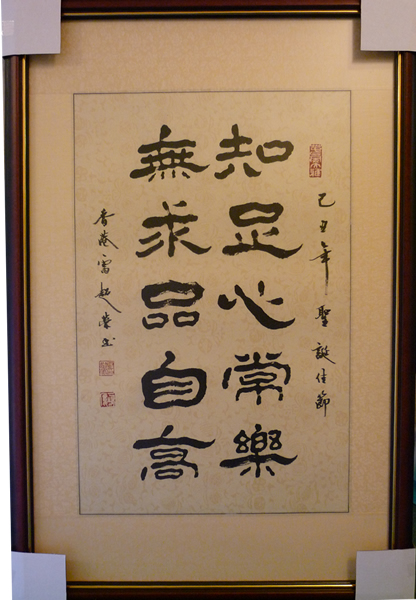 己丑年聖誕佳節
知足心常樂
無求品自高
香港雷超榮書